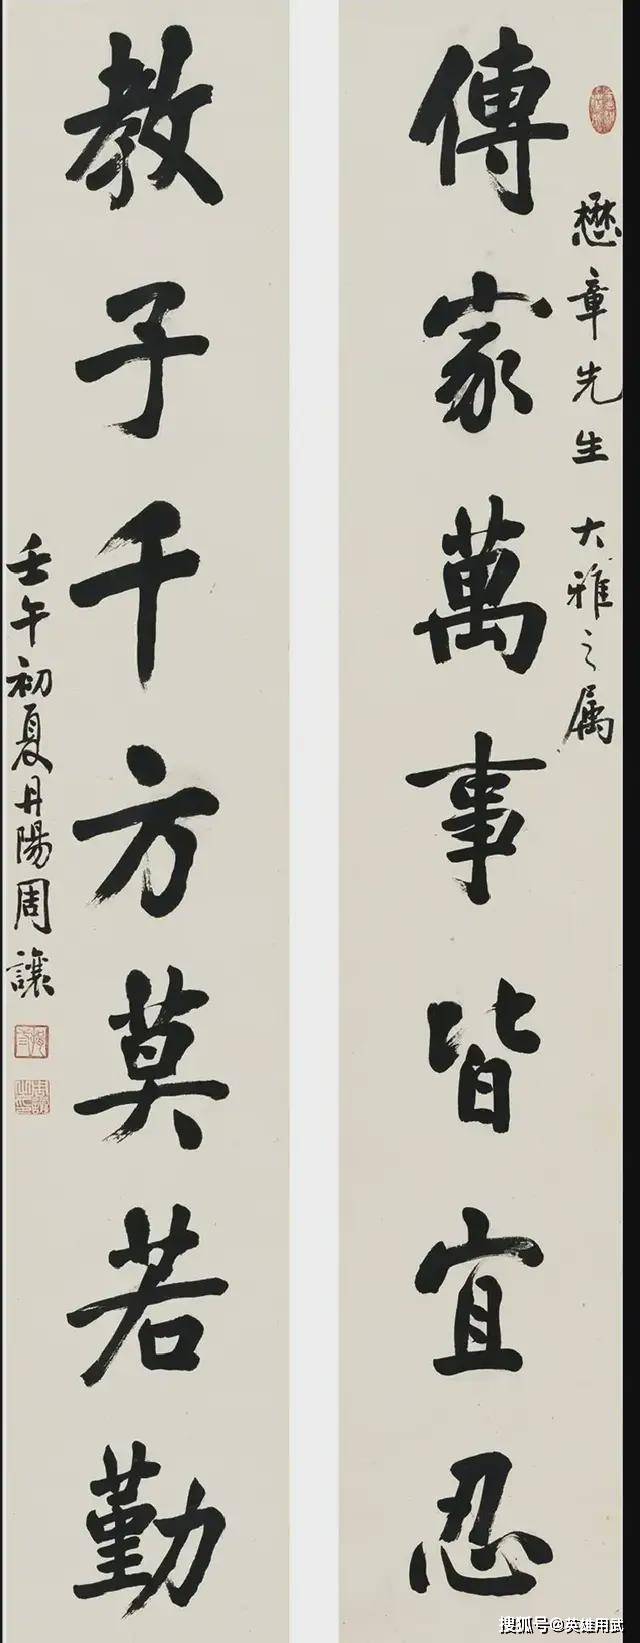 懋章先生大雅之属
傳家萬事皆宜忍
教子千方莫若勤
壬午初夏丹陽周讓
搜狐号@英雄用武